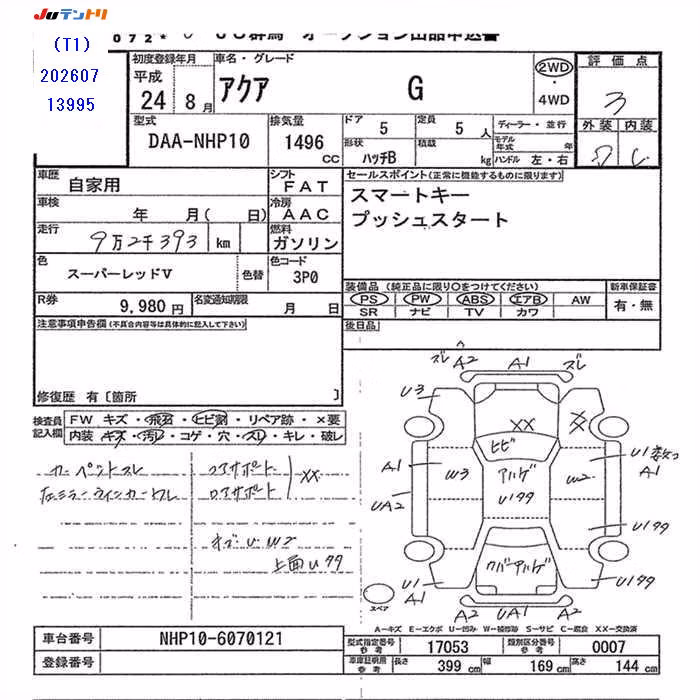 JUテントリ
072* JU群馬 オークション出品申込書
(T1)
202607
13995
初度登録年月
平成
24 8月
車名・グレード
アクア G
2WD
・
4WD
評価点
3
外装 内装
型式
DAA-NHP10
排気量
1496
CC
ドア 5
定員 5 人
形状 ハッチB
積載 kg
ディーラー・並行
モデル年式 年
ハンドル 左・右
車歴 自家用
シフト FAT
セールスポイント(正常に機能するものに限ります)
スマートキー
プッシュスタート
車検 年 月( 日)
冷房 AAC
走行 9万2千393 km
燃料 ガソリン
色 スーパーレッドV
色替
色コード 3P0
装備品(純正品に限り○をつけてください)
新車保証書
PS PW ABS エアB AW
SR ナビ TV カワ
有・無
R券 9,980円
名変通知期限 月 日
後日品
注意事項申告欄(不具合内容等は具体的に記入して下さい)
修復歴 有[箇所 ]
検査員記入欄
FW キズ・飛石・ヒビ割・リペア跡・×要
内装 キズ・汚レ・コゲ・穴・スレ・キレ・破レ
カーペントスレ
左ミラーウインカーカスレ
コアサポート
ロアサポート
XX
キズ U W2
上面 U99
ズレ A2 A1 ズレ
U3
XX
XX
ヒビ
A1
W3
アハゲ
U199
W2
U1 数つ
A1
UA2
U199
クリハアハゲ
U1
A1
U199
A2 UA1 A2
スペア
A―キズ E―エクボ U―凹み W―補修跡 S―サビ C―腐食 XX―交換済
車台番号 NHP10-6070121
登録番号
型式指定番号参考 17053
類別区分番号参考 0007
車庫証明用参考
長さ 399 cm
幅 169 cm
高さ 144 cm